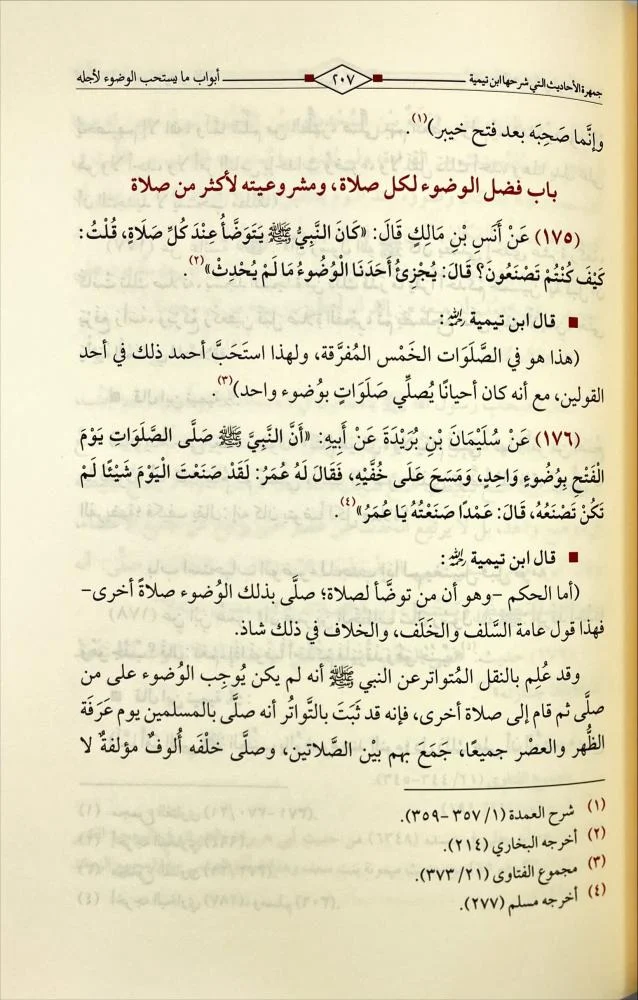 جمهرة الأحاديث التي شرحها ابن تيمية ٢٠٧ أبواب ما يستحب الوضوء لأجله
وإنَّما صَحِبَه بعد فتح خيبر)(١).
باب فضل الوضوء لكل صلاة، ومشروعيته لأكثر من صلاة
(١٧٥) عَنْ أَنَسِ بْنِ مَالِكٍ قَالَ: «كَانَ النَّبِيُّ ﷺ يَتَوَضَّأُ عِنْدَ كُلِّ صَلَاةٍ، قُلْتُ:
كَيْفَ كُنْتُمْ تَصْنَعُونَ؟ قَالَ: يُجْزِئُ أَحَدَنَا الْوُضُوءُ مَا لَمْ يُحْدِثْ»(٢).
■ قال ابن تيمية رحمه الله:
(هذا هو في الصَّلَوَات الخَمْس المُفرَّقة، ولهذا استَحَبَّ أحمد ذلك في أحد
القولين، مع أنه كان أحيانًا يُصلِّي صَلَوَاتٍ بوُضوء واحد)(٣).
(١٧٦) عَنْ سُلَيْمَانَ بْنِ بُرَيْدَةَ عَنْ أَبِيهِ: «أَنَّ النَّبِيَّ ﷺ صَلَّى الصَّلَوَاتِ يَوْمَ
الْفَتْحِ بِوُضُوءٍ وَاحِدٍ، وَمَسَحَ عَلَى خُفَّيْهِ، فَقَالَ لَهُ عُمَرُ: لَقَدْ صَنَعْتَ الْيَوْمَ شَيْئًا لَمْ
تَكُنْ تَصْنَعُهُ، قَالَ: عَمْدًا صَنَعْتُهُ يَا عُمَرُ»(٤).
■ قال ابن تيمية رحمه الله:
(أما الحكم -وهو أن من توضَّأ لصلاة؛ صلَّى بذلك الوُضوء صلاةً أخرى-
فهذا قول عامة السَّلف والخَلَف، والخلاف في ذلك شاذ.
وقد عُلِم بالنقل المُتواتر عن النبي ﷺ أنه لم يكن يُوجِب الوُضوء على من
صلَّى ثم قام إلى صلاة أخرى، فإنه قد ثبَتَ بالتَّواتُر أنه صلَّى بالمسلمين يوم عَرَفَة
الظُّهر والعصْر جميعًا، جَمَعَ بهم بيْن الصَّلاتين، وصلَّى خلْفَه أُلوفٌ مؤلفةٌ لا
(١) شرح العمدة (١/ ٣٥٧ -٣٥٩).
(٢) أخرجه البخاري (٢١٤).
(٣) مجموع الفتاوى (٢١/ ٣٧٣).
(٤) أخرجه مسلم (٢٧٧).